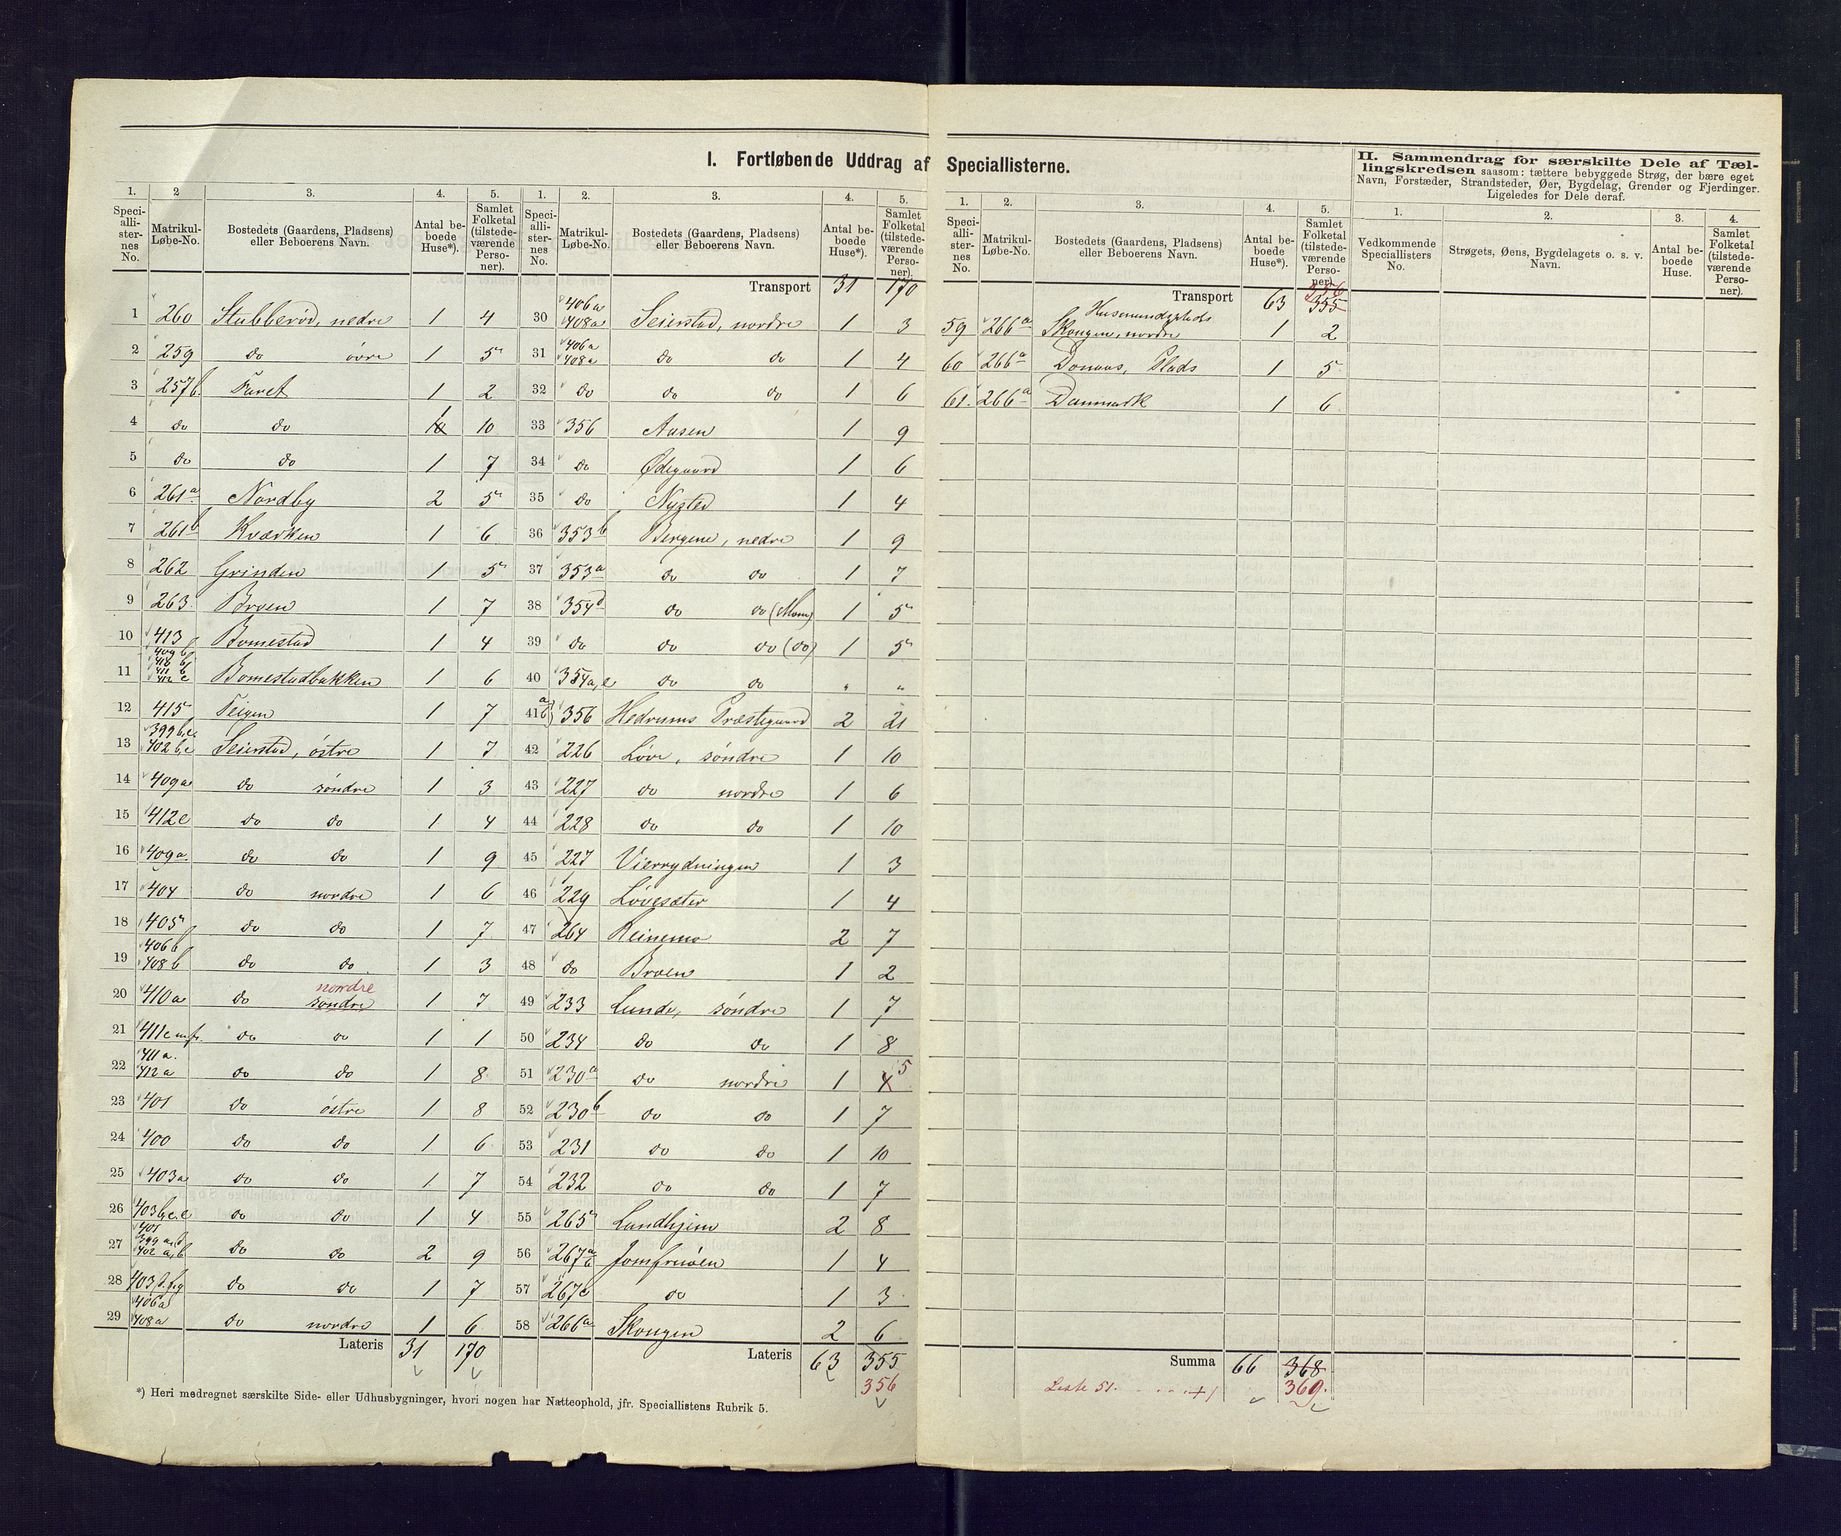 I. Fortløbende Uddrag af Speciallisterne.
II. Sammendrag for særskilte Dele af Tæl-
lingskredsen saasom: tættere bebyggede Strøg, der bære eget
Navn, Forstæder, Strandsteder, Øer, Bygdelag, Grender og Fjerdinger.
Ligeledes for Dele deraf.
1. 2 3. 4. 5.
Speciallisternes No. Matrikul-Løbe-No. Bostedets (Gaardens, Pladsens) eller Beboerens Navn. Antal beboede Huse*). Samlet Folketal (tilstedeværende Personer).
1 260 Stubberød, nedre 1 4
2 259 do övre 1 5
3 257b. Faret 1 2
4 do do 1 10
5 do do 1 7
6 261a Nordby 2 5
7 261b Kværken 1 6
8 262 Grinden 1 5
9 263 Broen 1 7
10 413 Bomestad 1 4
11 409b 410b 411b 412c Bomestadbakken 1 6
12 415 Teigen 1 7
13 399b,c 402b,c Seierstad, östre 1 7
14 409a do söndre 1 3
15 412c do do 1 4
16 409a do do 1 9
17 404 do nordre 1 6
18 405 do do 1 7
19 406b 408b do do 1 3
20 410a do söndre nordre 1 7
21 411c do do 1 1
22 411a. 412a do do 1 8
23 401 do östre 1 8
24 400 do do 1 6
25 403a do do 1 7
26 403b,c.e do do 1 4
27 402a,b do do 2 9
28 do do 1 7
29 406a 408a do nordre 1 6
Lateris 31 170
1. 2. 3. 4. 5.
Speciallisternes No. Matrikul-Løbe-No. Bostedets (Gaardens, Pladsens) eller Beboerens Navn. Antal beboede Huse*). Samlet Folketal (tilstedeværende Personer).
Transport 31 170
30 406a 408a Seierstad, nordre 1 3
31 406a 408a do do 1 4
32 do do do 1 6
33 356 Aasen 1 9
34 do Ödegaard 1 6
35 do Nysted 1 4
36 353b Bergene, nedre 1 9
37 353a do do 1 7
38 354d do do (Moen) 1 5
39 do do do (do) 1 5
40 354a,c do do " "
41 a b 356 Hedrums Præstegaard 2 21
42 226 Löve, söndre 1 10
43 227 do nordre 1 6
44 228 do do 1 10
45 227 Vierrydningen 1 3
46 229 Lövesæter 1 4
47 264 Reinemo 2 7
48 do Broen 1 2
49 233 Lunde, söndre 1 7
50 234 do do 1 8
51 230a do nordre 1 4 5
52 230b do do 1 7
53 231 do do 1 10
54 232 do do 1 7
55 265 Lundhjem 2 8
56 267a b Jomfruöen 1 4
57 267c do 1 3
58 266a Skougen 2 6
Lateris 63 355
356
*) Heri medregnet særskilte Side- eller Udhusbygninger, hvori nogen har Natteophold, jfr. Speciallistens Rubrik 5.
1. 2. 3. 4. 5.
Speciallisternes No. Matrikul-Løbe-No. Bostedets (Gaardens, Pladsens) eller Beboerens Navn. Antal beboede Huse*). Samlet Folketal (tilstedeværende Personer).
Transport 63 355 356
Husmandsplads
59 266a Skougen, nordre 1 2
60 266a Donaas, Plads 1 5
61. 266a Danmark 1 6
Summa 66 368
Liste 51. . . . . +1 369.
1. 2. 3. 4.
Vedkommende Speciallisters No. Strøgets, Øens, Bygdelagets o. s. v. Navn. Antal beboede Huse. Samlet Folketal (tilstedeværende Personer).